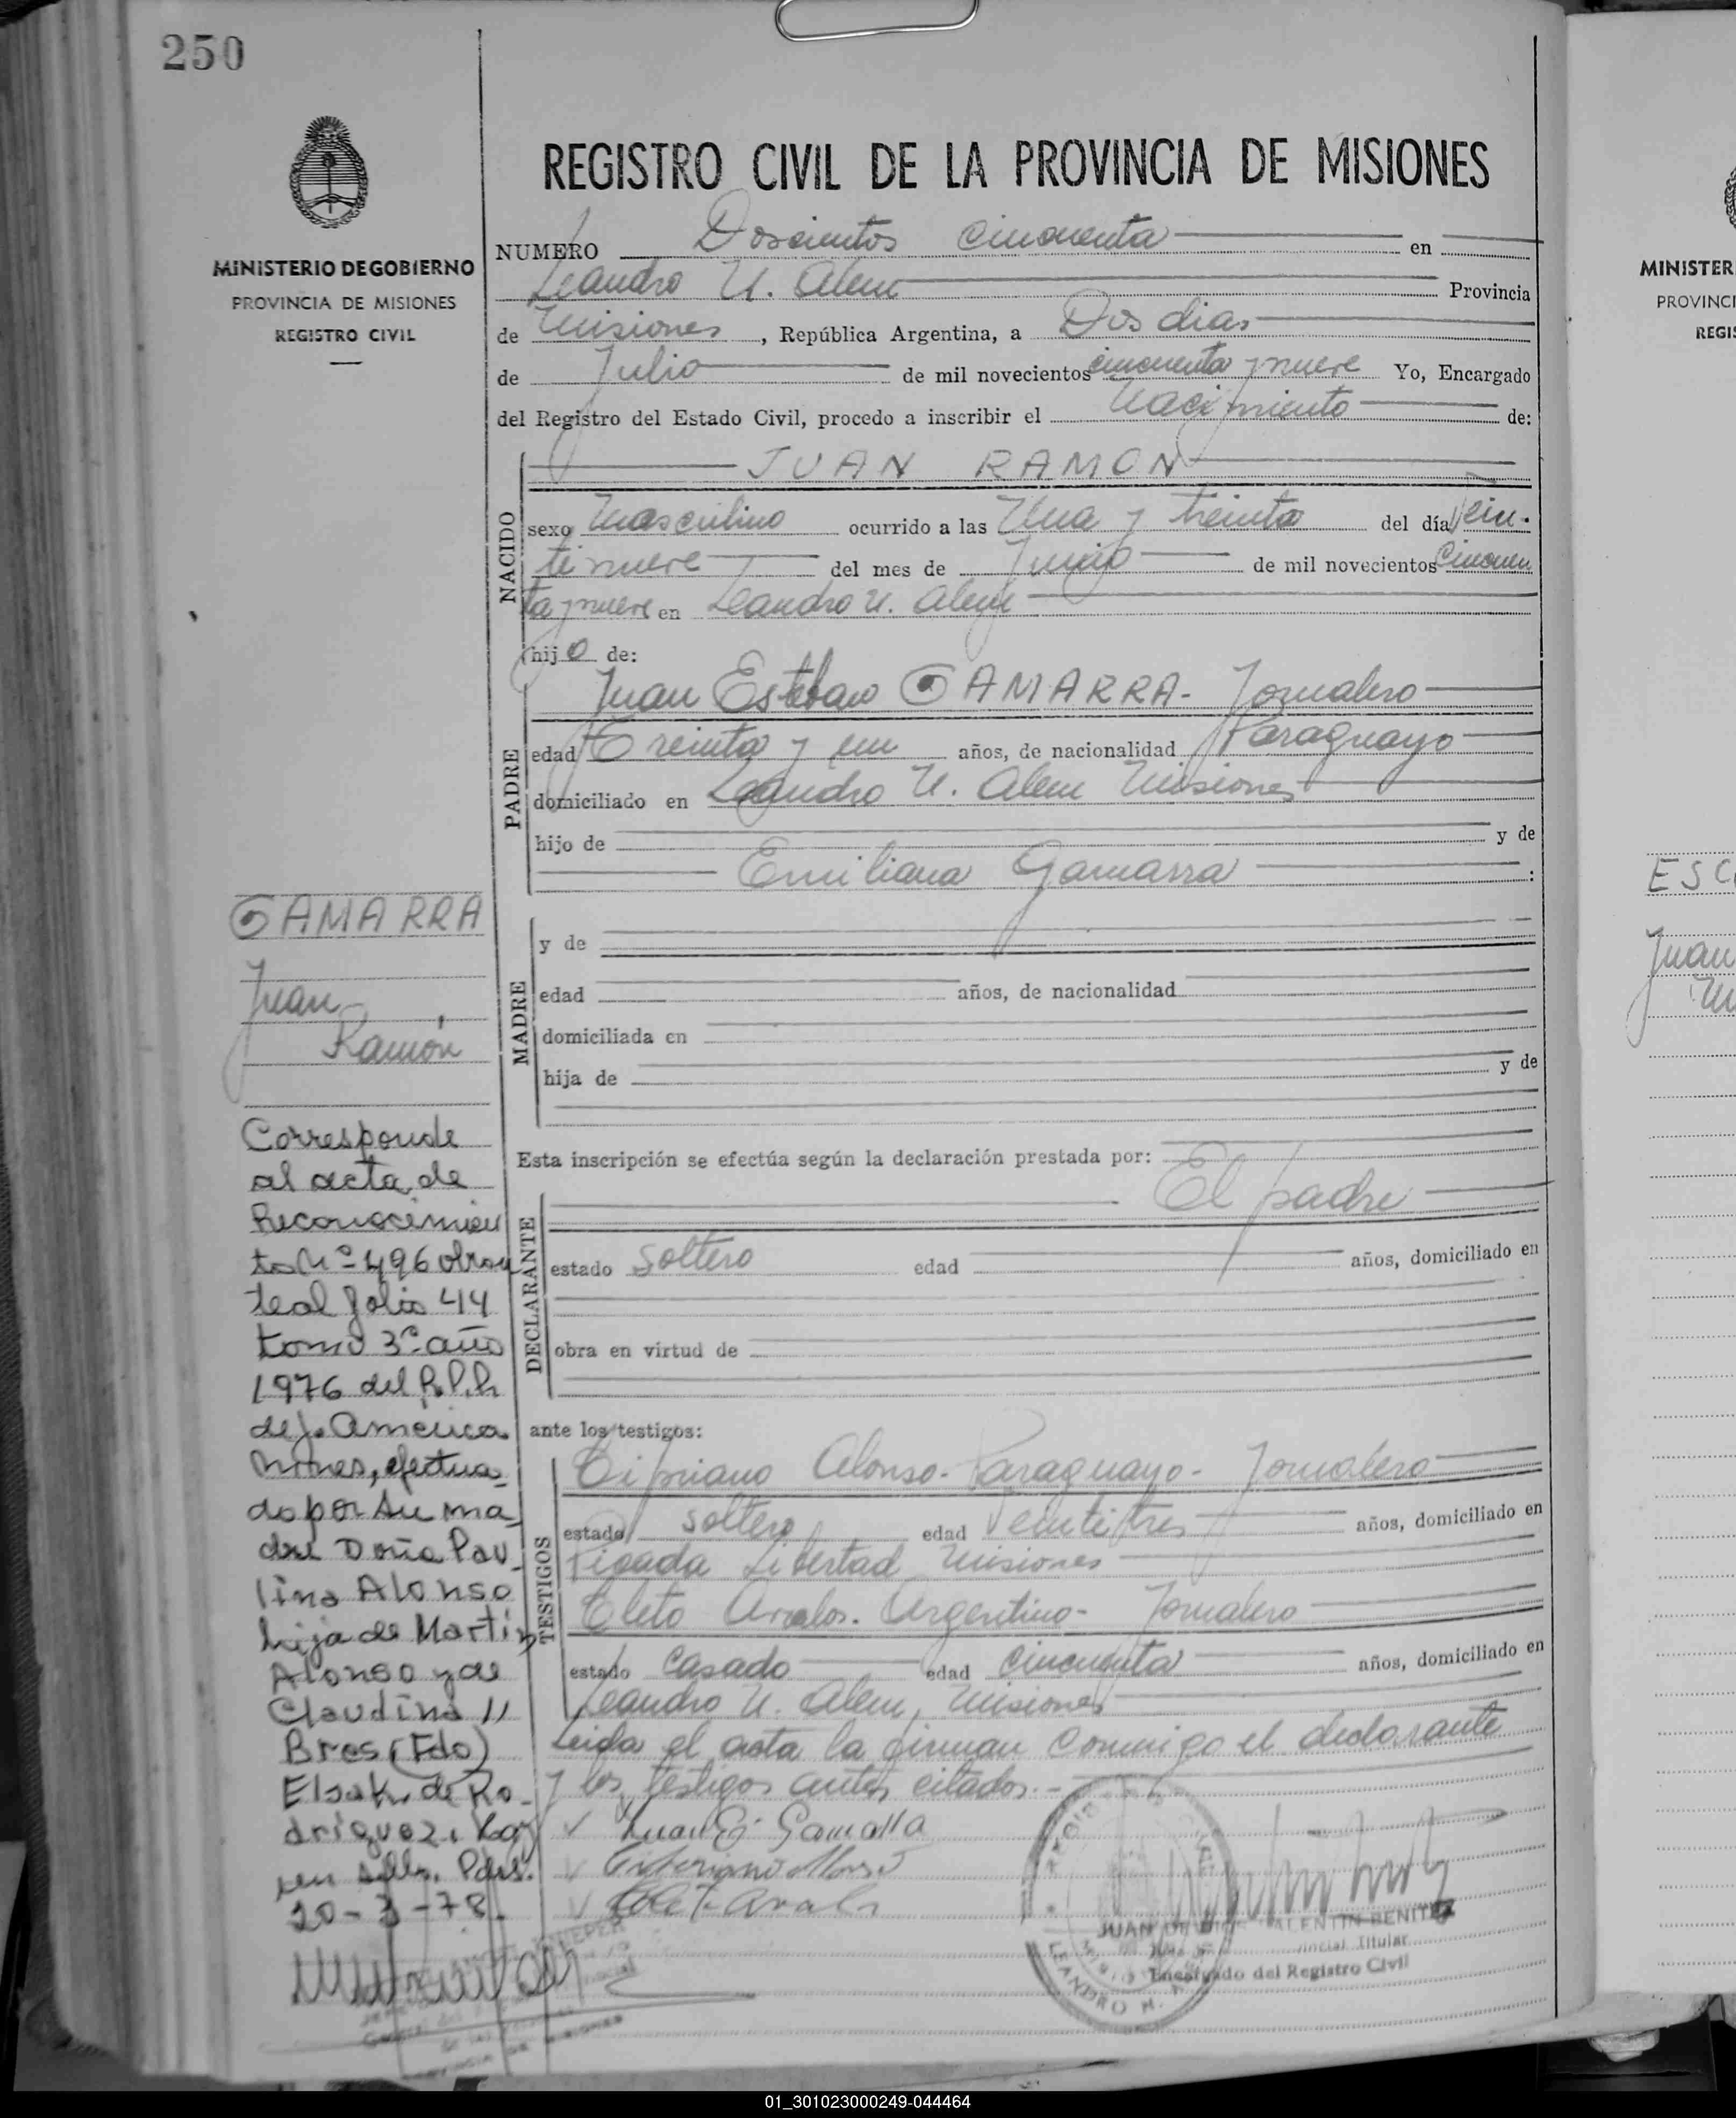 250
MINISTERIO DE GOBIERNO
PROVINCIA DE MISIONES
REGISTRO CIVIL
REGISTRO CIVIL DE LA PROVINCIA DE MISIONES
NUMERO Doscientos cincuenta en
Leandro N. Alem Provincia
de Misiones, República Argentina, a Dos dias
de Julio de mil novecientos cincuenta y nueve Yo, Encargado
del Registro del Estado Civil, procedo a inscribir el Nacimiento de:
JUAN RAMON
NACIDO
sexo Masculino ocurrido a las Una y treinta del día Vein-
tinueve del mes de Junio de mil novecientos Cincuen
ta y nueve en Leandro N. Alem
hijo de:
PADRE
Juan Esteban GAMARRA- Jornalero
edad Treinta y un años, de nacionalidad Paraguayo
domiciliado en Leandro N. Alem Misiones
hijo de y de
Emiliana Gamarra :
MADRE
y de
edad años, de nacionalidad
domiciliada en
hija de y de
Esta inscripción se efectúa según la declaración prestada por:
El padre
DECLARANTE
estado soltero edad años, domiciliado en
obra en virtud de
ante los testigos:
TESTIGOS
Cipriano Alonso- Paraguayo- Jornalero
estado soltero edad Veintitres años, domiciliado en
Picada Libertad Misiones
Cleto Arralos. Argentino- Jornalero
estado Casado edad cincuenta años, domiciliado en
Leandro N. Alem, Misiones
Leida el acta la firman conmigo el declarante
y los testigos antes citados.-
Juan E. Gamarra
Cipriano Alonso
JUAN DE DIOS VALENTIN BENITEZ
Titular
Encargado del Registro Civil
LEANDRO N.
GAMARRA
Juan
Ramón
Corresponde
al acta de
Reconocimien
to Nº 496 obran
te al folio 44
tomo 3º año
1976 del R.P.P.
de J. America
Mnes, efectua-
do por su ma
dre Doña Pau-
lina Alonso
hija de Martin
Alonso y de
Claudina
Bres (Fdo)
Elsa K. de Ro-
driguez.
Pdas.
20-3-78.
MINISTER
PROVINCI
REGIS
ESC
Juan
01_301023000249-044464